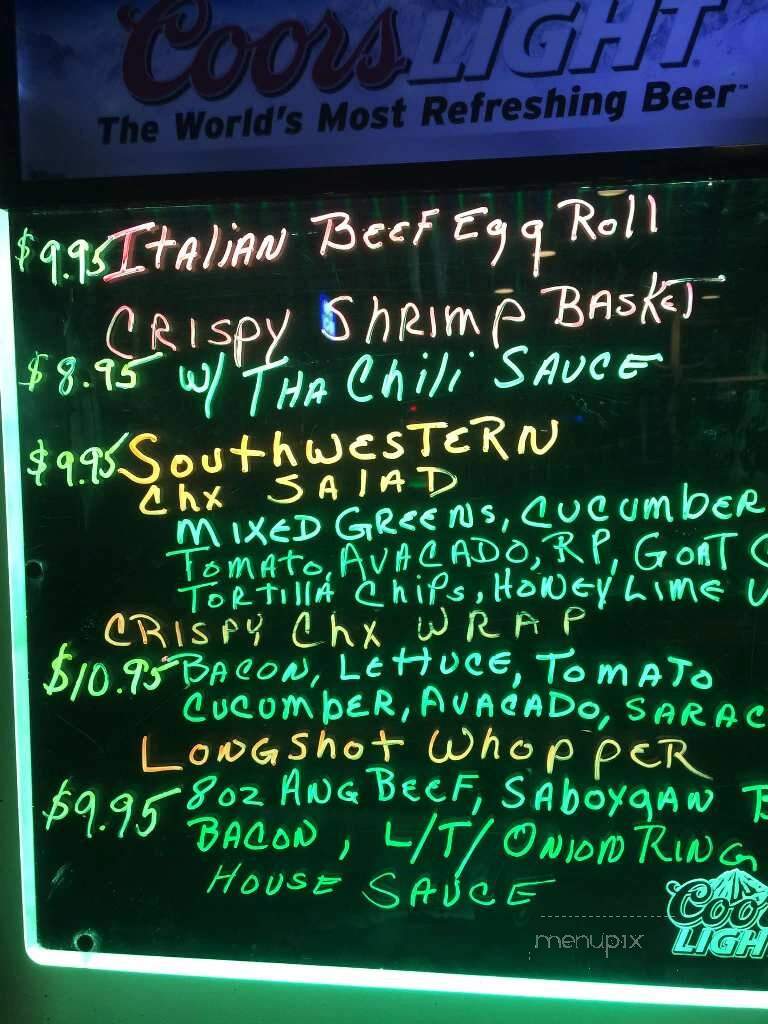 Coors LIGHT
The World's Most Refreshing Beer™
$9.95 Italian Beef Egg Roll
Crispy Shrimp Basket
$8.95 w/ Tha Chili Sauce
$9.95 Southwestern
Chx Salad
Mixed Greens, Cucumber
Tomato, Avacado, RP, Goat
Tortilla Chips, Honey Lime
Crispy Chx Wrap
$10.95 Bacon, Lettuce, Tomato
Cucumber, Avacado,
Longshot Whopper
$9.95 8oz Ang Beef, Saboygan
Bacon, L/T/Onion Ring
House Sauce
Coo
LIGH
menupix